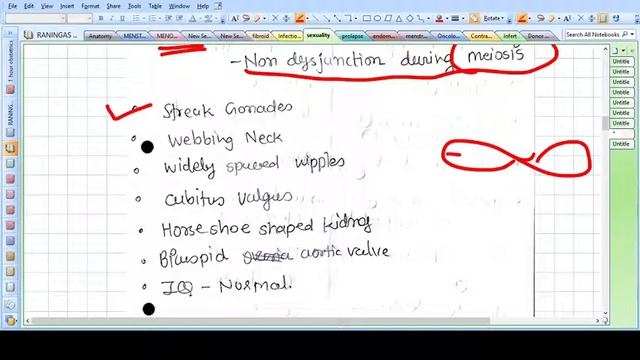 RANINGAS
Anatomy
MENST
MENO
New Se
New Se
fibroid
Infectio
sexuality
prolapse
endom
menstr
Oncolo
Contra
Infert
Donor
Search All Notebooks
Rotate
1 hour obstetrics
Untitle
Untitle
Untitle
Untitle
Untitle
Untitle
Untitle
Untitle
Untitle
Untitle
- Non dysjunction during meiosis
• Streak Gonades
• Webbing Neck
• Widely spaced nipples
• Cubitus valgus
• Horse shoe shaped kidney
• Biuspid aortic valve
• IQ - Normal.